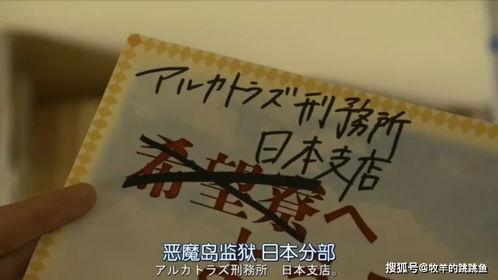 アルカトラズ刑務所
日本支店
希望寮へ
恶魔岛监狱 日本分部
アルカトラズ刑務所　日本支店。
搜狐号@牧羊的跳跳鱼